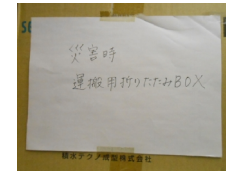 災害時
運搬用折りたたみBOX
積水テクノ成型株式会社